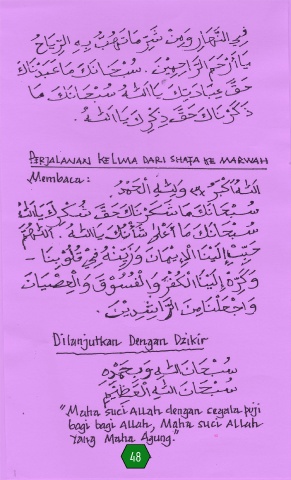 فِي النَّهَارِ وَمِنْ شَرِّ مَا تَهُبُّ بِهِ الرِّيَاحُ
يَا أَرْحَمَ الرَّاحِمِيْنَ. سُبْحَانَكَ مَا عَبَدْنَاكَ
حَقَّ عِبَادَتِكَ يَا اَللّٰهُ سُبْحَانَكَ مَا
ذَكَرْنَاكَ حَقَّ ذِكْرِكَ يَا اَللّٰهُ.
PERJALANAN KELIMA DARI SHAFA KE MARWAH
Membaca:
اَللّٰهُ أَكْبَرُ ٣× وَلِلّٰهِ الْحَمْدُ.
سُبْحَانَكَ مَا شَكَرْنَاكَ حَقَّ شُكْرِكَ يَا اَللّٰهُ
سُبْحَانَكَ مَا أَعْلَى شَأْنَكَ يَا اَللّٰهُ. اَللّٰهُمَّ
حَبِّبْ إِلَيْنَا الْإِيْمَانَ وَزَيِّنْهُ فِي قُلُوْبِنَا -
وَكَرِّهْ إِلَيْنَا الْكُفْرَ وَالْفُسُوْقَ وَالْعِصْيَانَ
وَاجْعَلْنَا مِنَ الرَّاشِدِيْنَ.
Dilanjutkan Dengan Dzikir
سُبْحَانَ اللّٰهِ وَبِحَمْدِهِ
سُبْحَانَ اللّٰهِ الْعَظِيْمِ
"Maha suci Allah dengan segala puji
bagi bagi Allah, Maha suci Allah
yang Maha Agung."
48